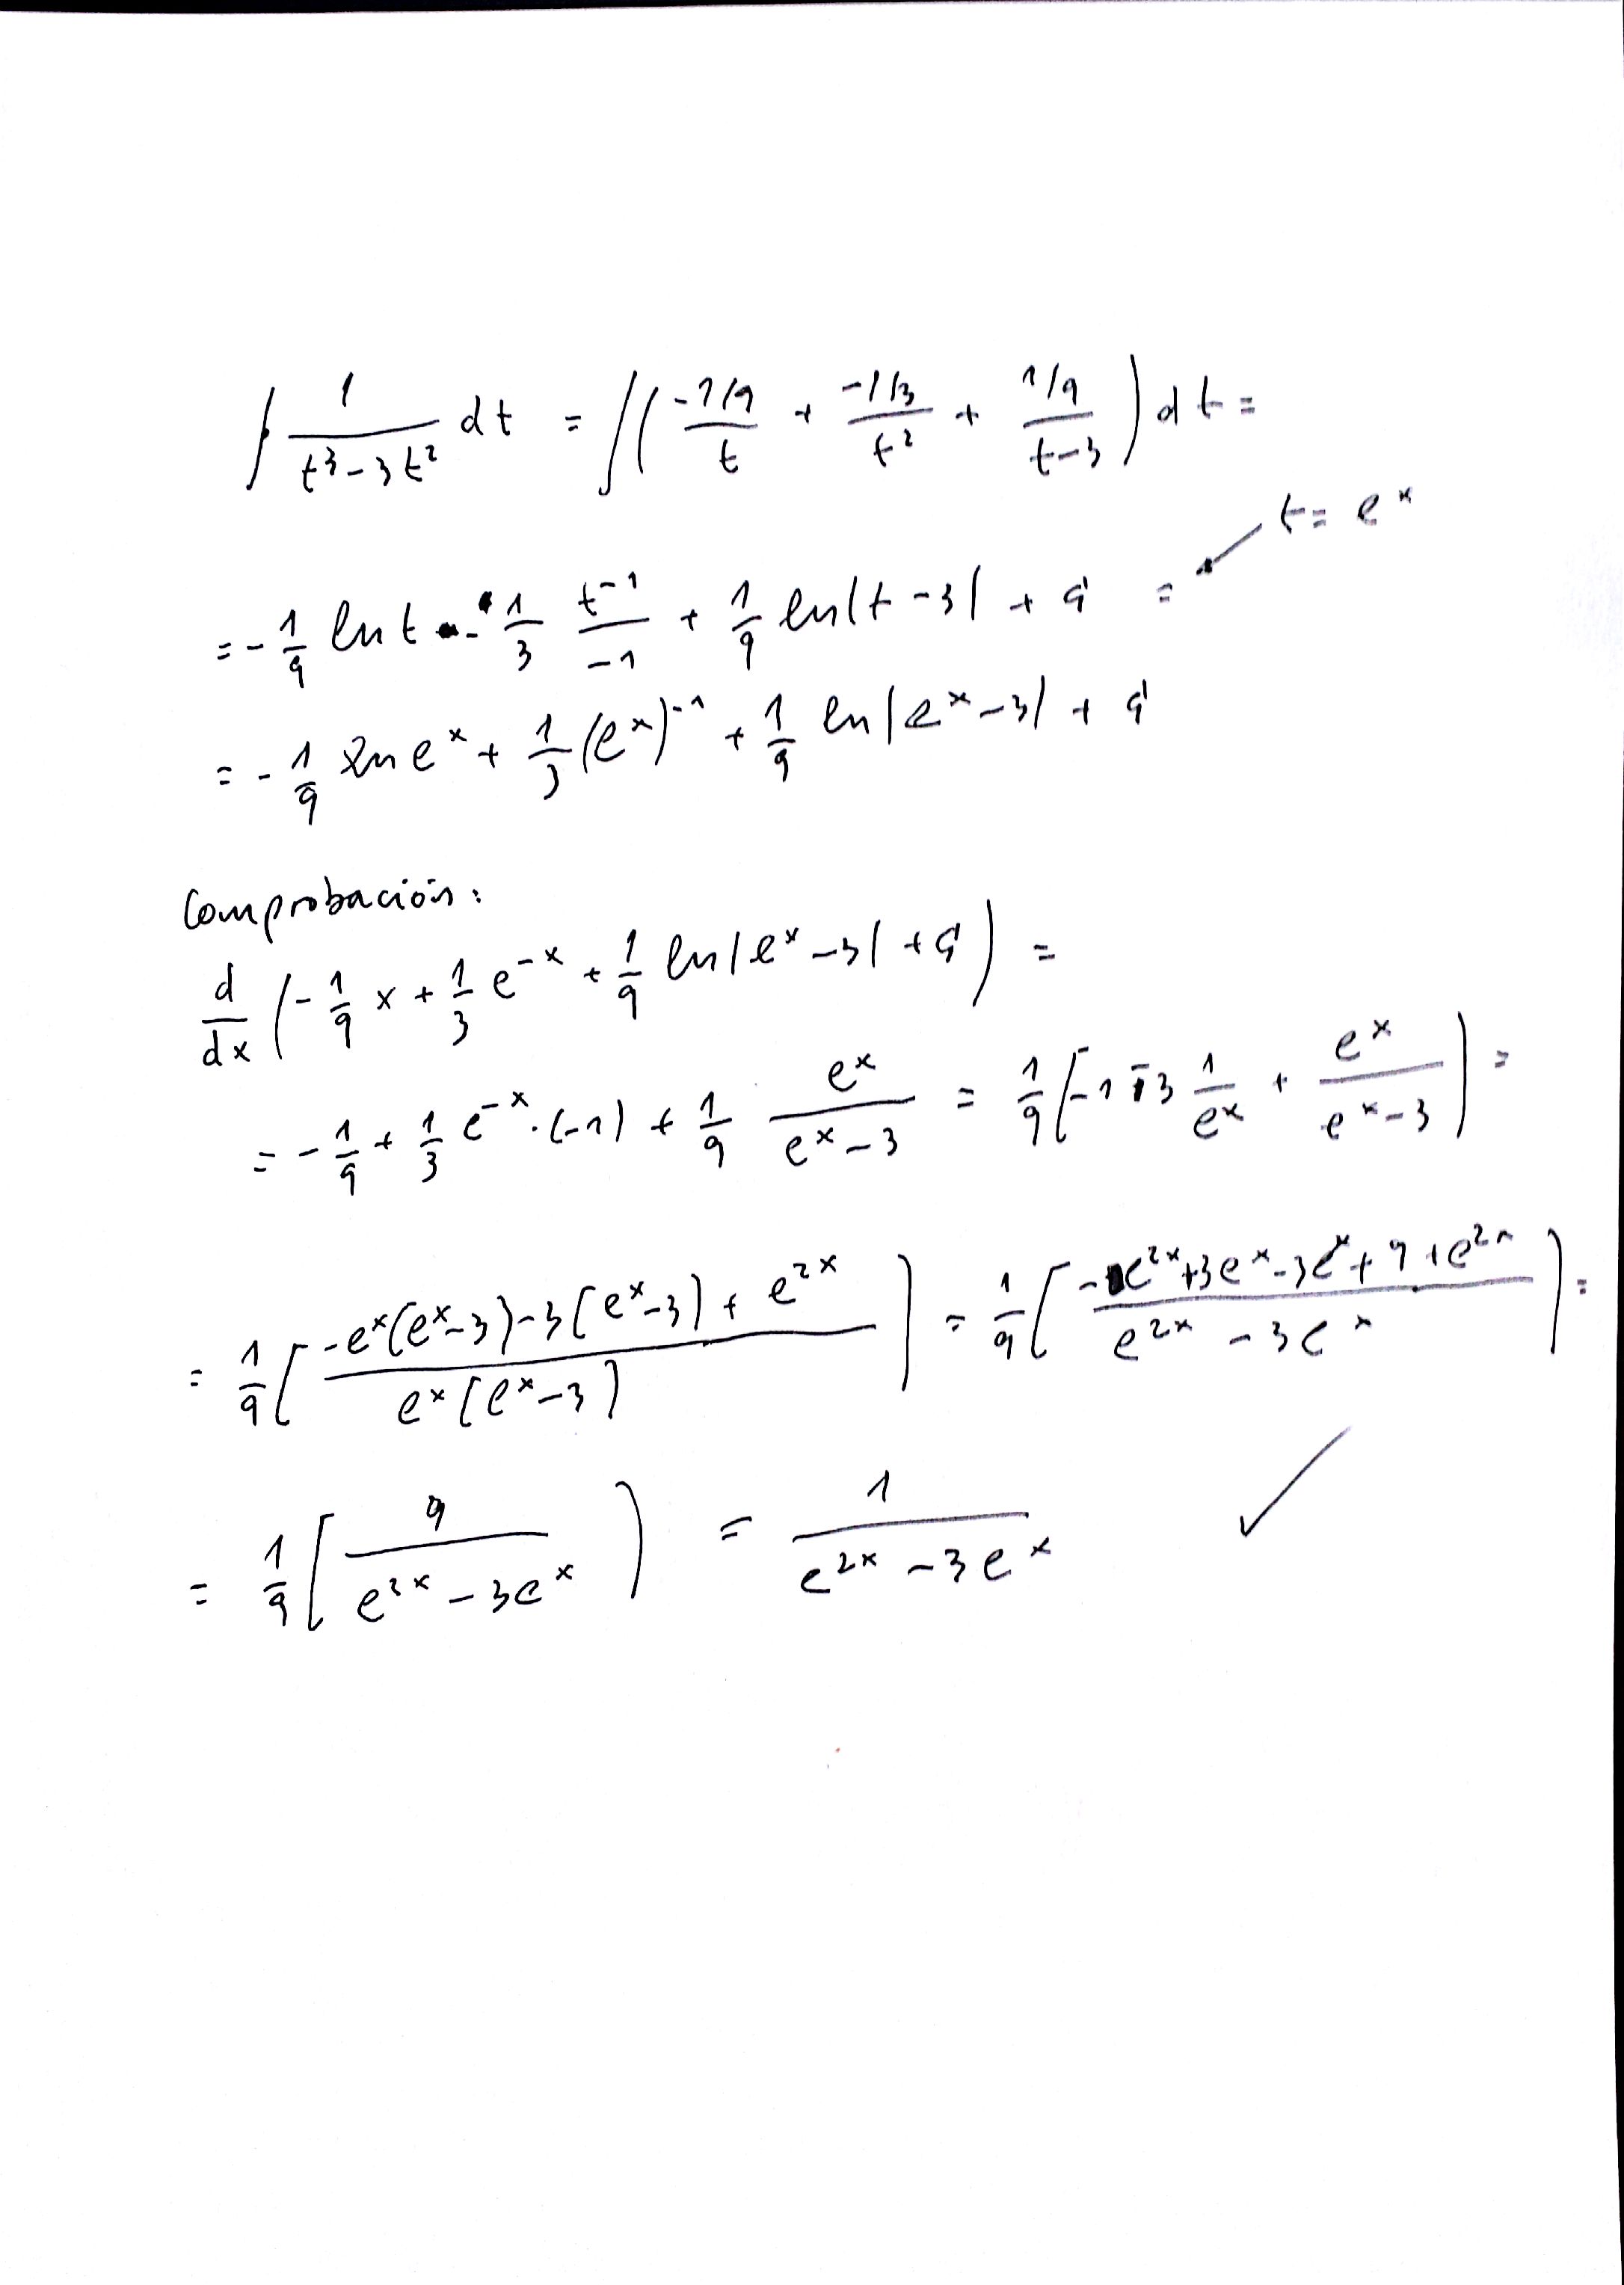 ∫ 1/(t³-3t²) dt = ∫( (-1/9)/t + (-1/3)/t² + (1/9)/(t-3) ) dt =
t = e^x
= - 1/9 ln t - 1/3 t⁻¹/(-1) + 1/9 ln|t-3| + C =
= - 1/9 ln e^x + 1/3 (e^x)⁻¹ + 1/9 ln|e^x-3| + C
Comprobación:
d/dx (- 1/9 x + 1/3 e^(-x) + 1/9 ln|e^x-3| + C) =
= - 1/9 + 1/3 e^(-x)·(-1) + 1/9 e^x/(e^x-3) = 1/9 [-1 - 3 1/e^x + e^x/(e^x-3)] =
= 1/9 [ (-e^x(e^x-3)-3(e^x-3)+e^(2x)) / (e^x(e^x-3)) ] = 1/9 [ (-e^(2x)+3e^x-3e^x+9+e^(2x)) / (e^(2x)-3e^x) ] =
= 1/9 [ 9/(e^(2x)-3e^x) ] = 1/(e^(2x)-3e^x) ✓